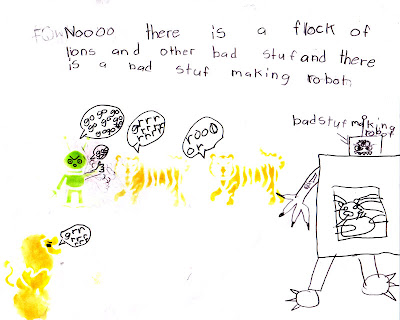 Noooo there is a flock of
lions and other bad stuf and there
is a bad stuf making robot
grrr
rrrr
rooo
or
badstufmaking
robot
grr